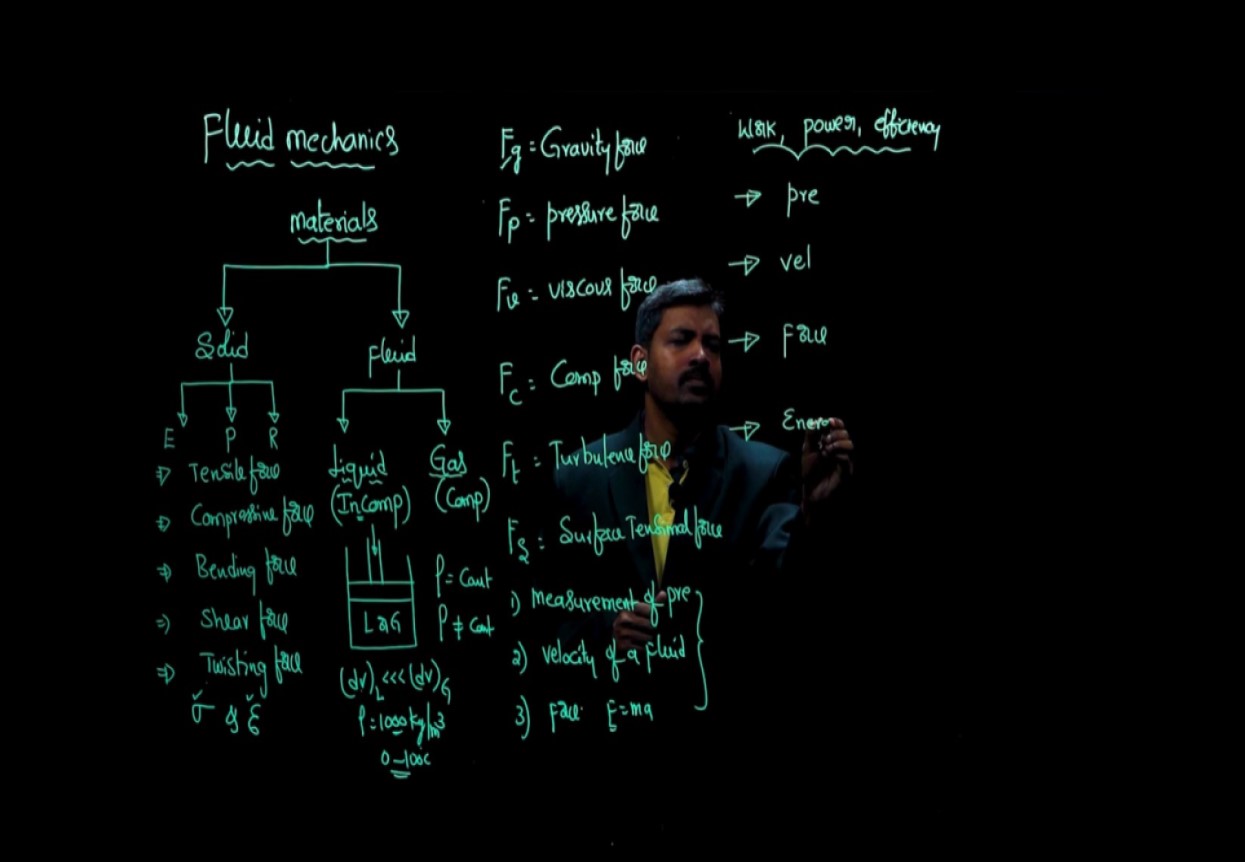 Fluid mechanics
materials
Solid
Fluid
E P R
⇒ Tensile force
⇒ Compressive force
⇒ Bending force
⇒ Shear force
⇒ Twisting force
σ & ε
Liquid
(Incomp)
Gas
(Comp)
L or G
ρ = Const
ρ ≠ Const
(dv)L <<< (dv)G
ρ = 1000 kg/m³
0-100c
Fg = Gravity force
Fp = pressure force
Fv = viscous force
Fc = Comp force
Ft = Turbulence force
Fs = Surface Tensional force
1) measurement of pre
2) velocity of a fluid
3) force F = ma
Work, power, efficiency
→ pre
→ vel
→ Force
→ Energ